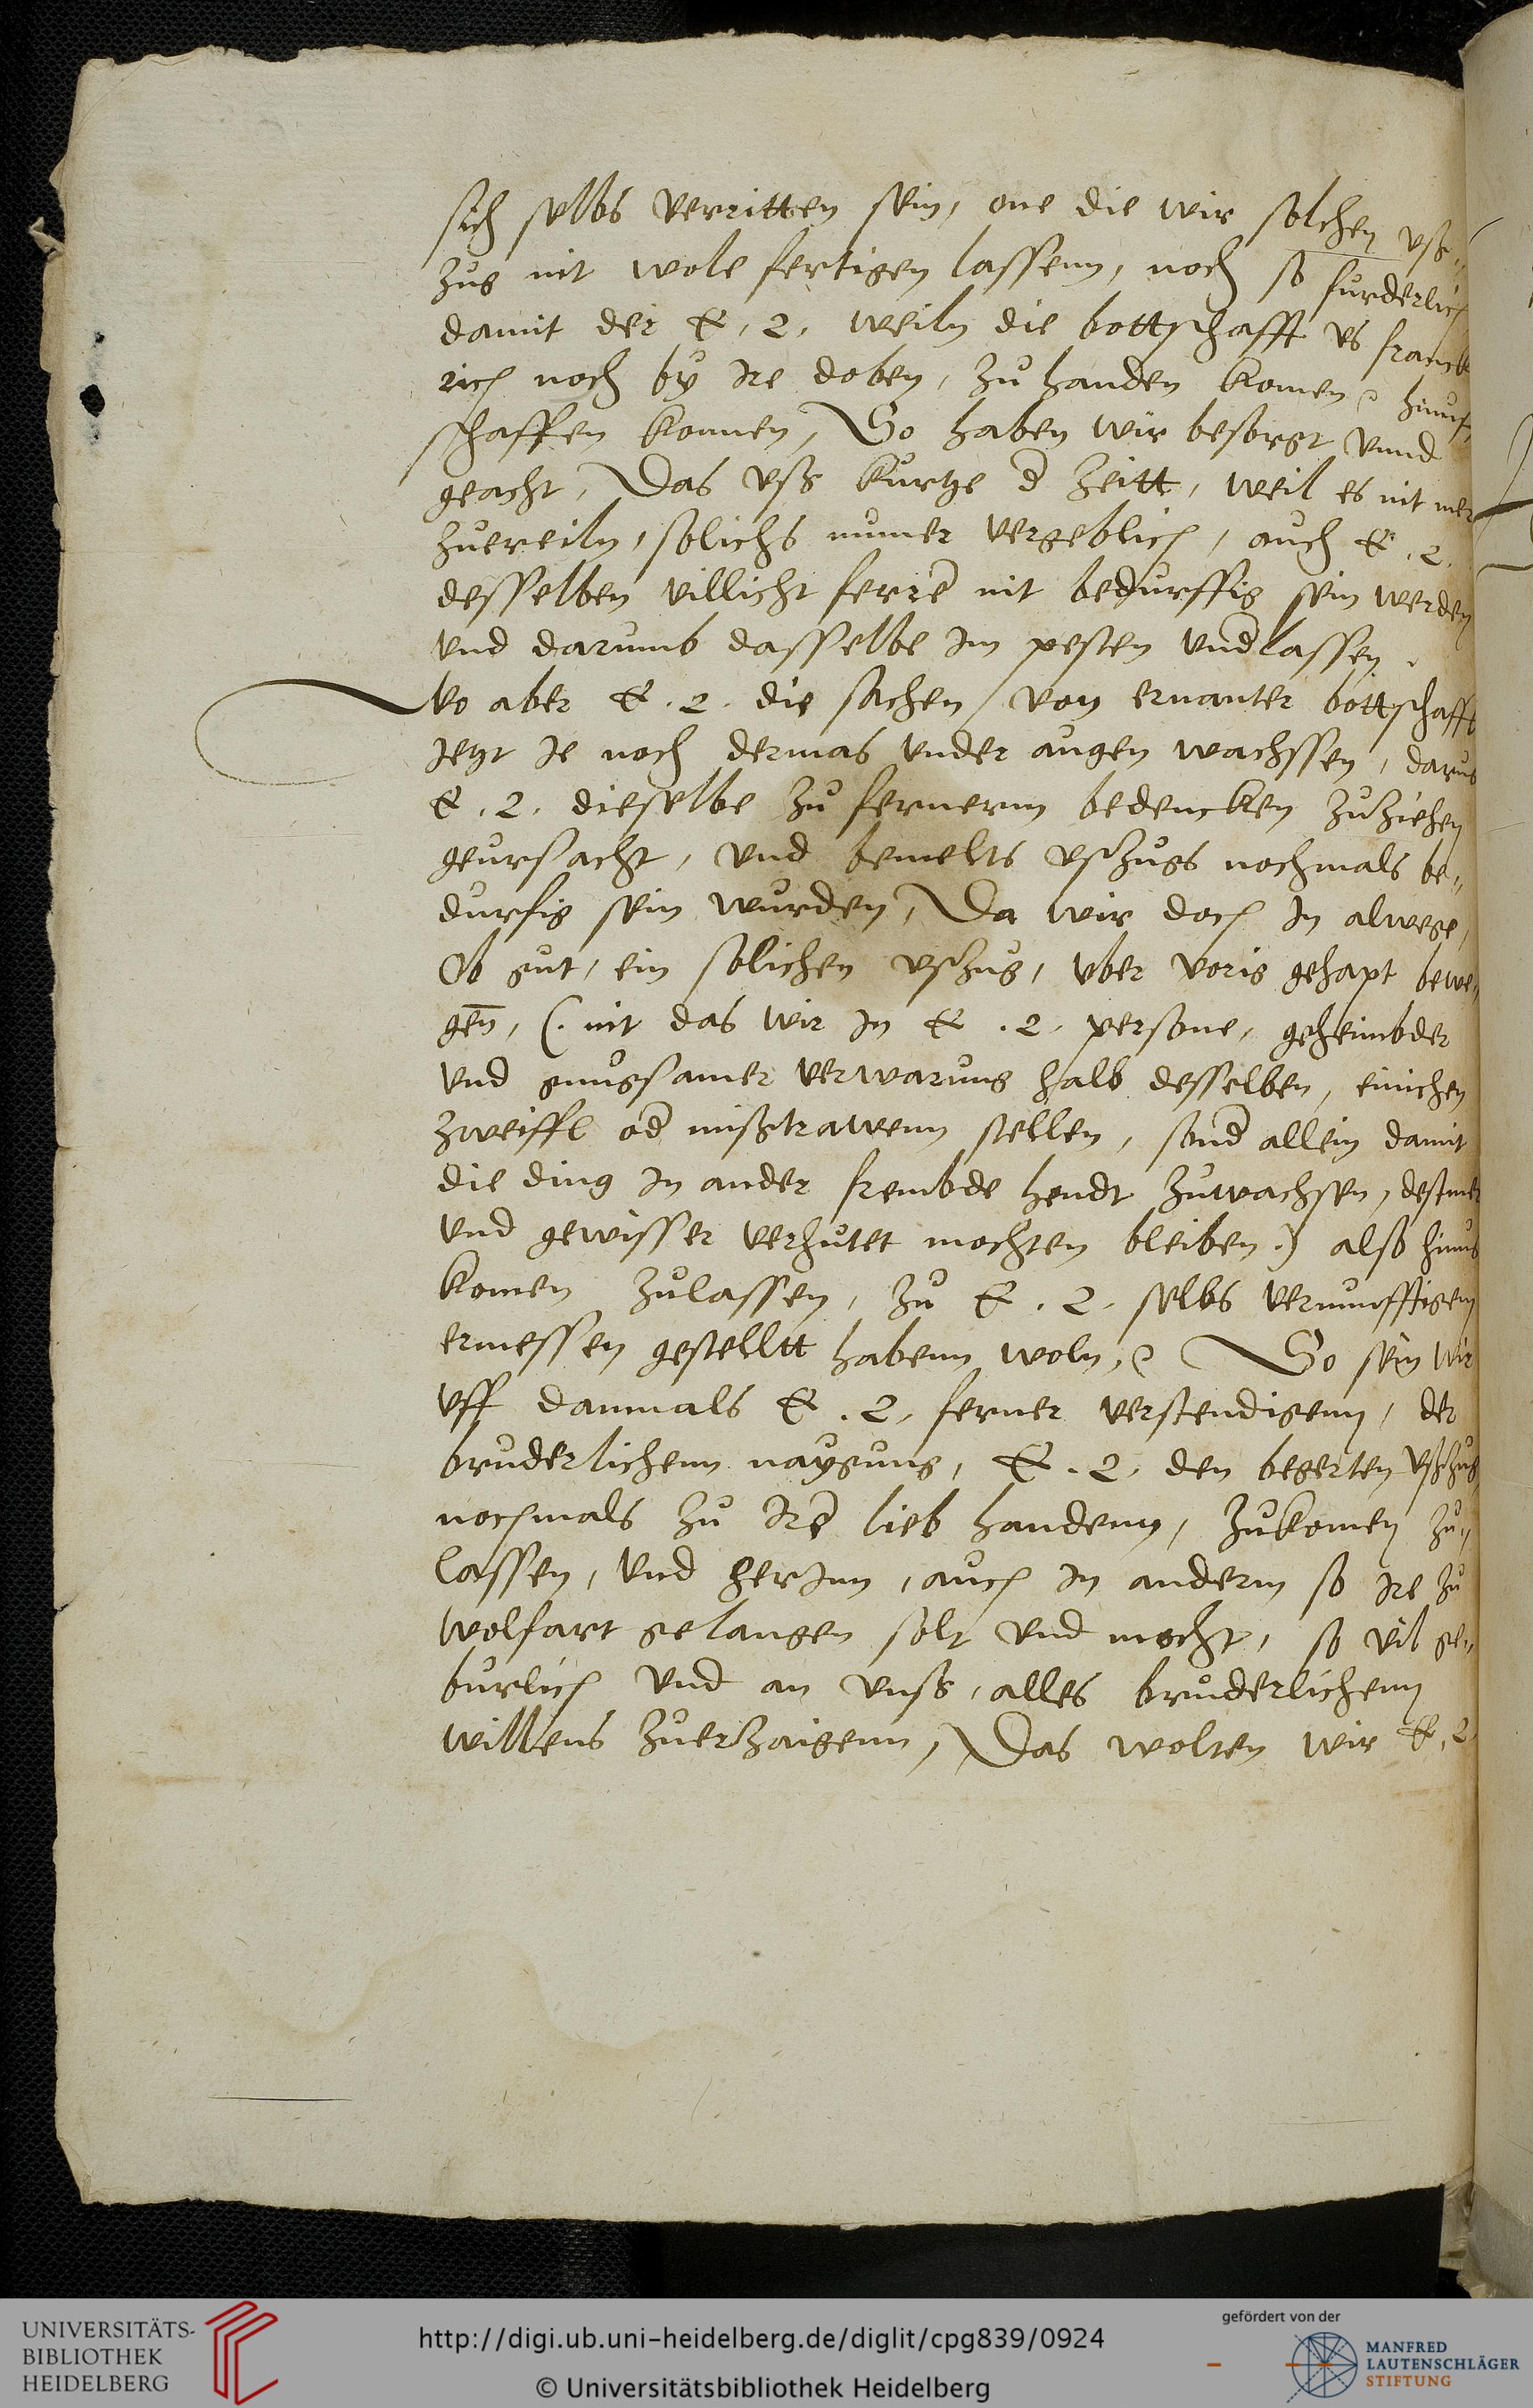 sich selbs verritten sein, one die wir solchen vß„
zug nit wole fertigen lassenn, noch so furderlich
damit der E. L. weiln die bottschafft vs franck
rich noch by Ire doben, zu handen komen, hinuf
schaffen konnen, So haben wir besorgt vnnd
geacht, Das vss kurtze d zeitt, weil es nit mer
zuereiln, solichs numer vergeblich, auch E. L.
desselben villicht ferre nit bedurffig sein werden
vnd darumb dasselbe Im pesten vndlassen.
Wo aber E. L. die sachen von ernanter bottschafft
Jetzt Je noch dermas vnder augen wachssen, darus
E. L. dieselbe zu fernerm bedencken zuziehen
geursacht, vnd bemelts vßzugs nochmals be„
durfig sein wurden, Da wir doch In alwege,
Ob gut, ein solichen vßzug, vber vorig gehapt bewe„
gen, (. nit das wir In E. L. persone, geheimbder
vnd gnugsamer verwarung halb desselben, einichen
zweiffl od mißtrawenn stellen, sond allein damit
die ding In ander frembde hendt zuwachsen, destmer
vnd gewisser verhutet mochten bleiben .) also hinus
komen zulassen, zu E. L. selbs vernunfftigem
ermessen gestelltt habenn woln, So sein wir
vff danmals E. L. ferner verstendigenn, der
bruderlichenn naygung, E. L. den begerten vßzug
nochmals zu Ire lieb handenn, zukomen zu„
lassen, vnd herInn, auch In anderm so Ire zu
wolfart gelangen solt vnd mocht, so vil ge„
burlich vnd an vnss, alles bruderlichenn
willens zuerzaigenn, Das wolten wir E. L.
UNIVERSITÄTS-
BIBLIOTHEK
HEIDELBERG
http://digi.ub.uni-heidelberg.de/diglit/cpg839/0924
© Universitätsbibliothek Heidelberg
gefördert von der
MANFRED
LAUTENSCHLÄGER
STIFTUNG